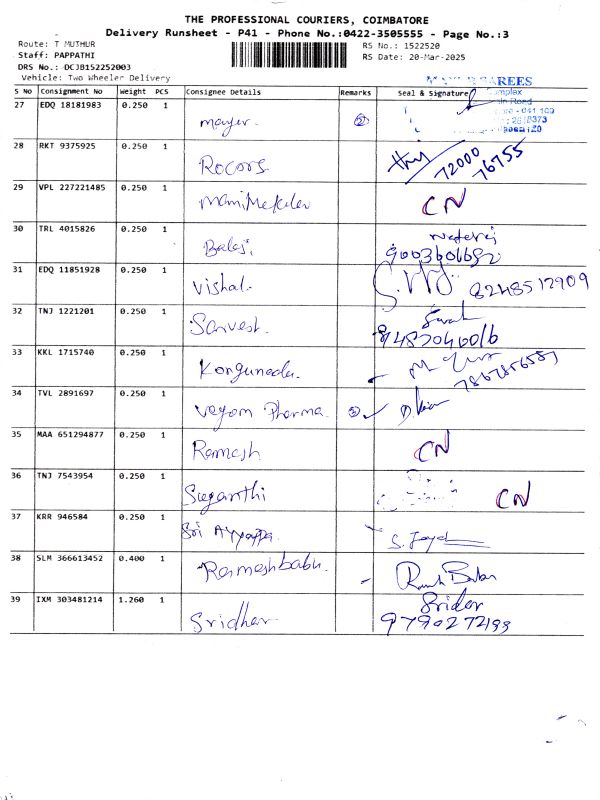 THE PROFESSIONAL COURIERS, COIMBATORE
Delivery Runsheet - P41 - Phone No.:0422-3505555 - Page No.:3
Route: T MUTHUR
RS No.: 1522520
Staff: PAPPATHI
RS Date: 20-Mar-2025
DRS No.: DCJB152252003
Vehicle: Two Wheeler Delivery
S No Consignment No Weight PCS Consignee Details Remarks Seal & Signature
27 EDQ 18181983 0.250 1 mayer.
28 RKT 9375925 0.250 1 Rocors 72000 76755
29 VPL 227221485 0.250 1 CN
30 TRL 4015826 0.250 1 Balaji 9003606692
31 EDQ 11851928 0.250 1 Vishal. 8248512909
32 TNJ 1221201 0.250 1 Sarvesh.
33 KKL 1715740 0.250 1 Kongunadu.
34 TVL 2891697 0.250 1 Vayom Pharma.
35 MAA 651294877 0.250 1 Ramesh CN
36 TNJ 7543954 0.250 1 Suganthi CN
37 KRR 946584 0.250 1 Sri Ayyappa.
38 SLM 366613452 0.400 1 Rameshbabu.
39 IXM 303481214 1.260 1 Sridhar Sridar
9790272193